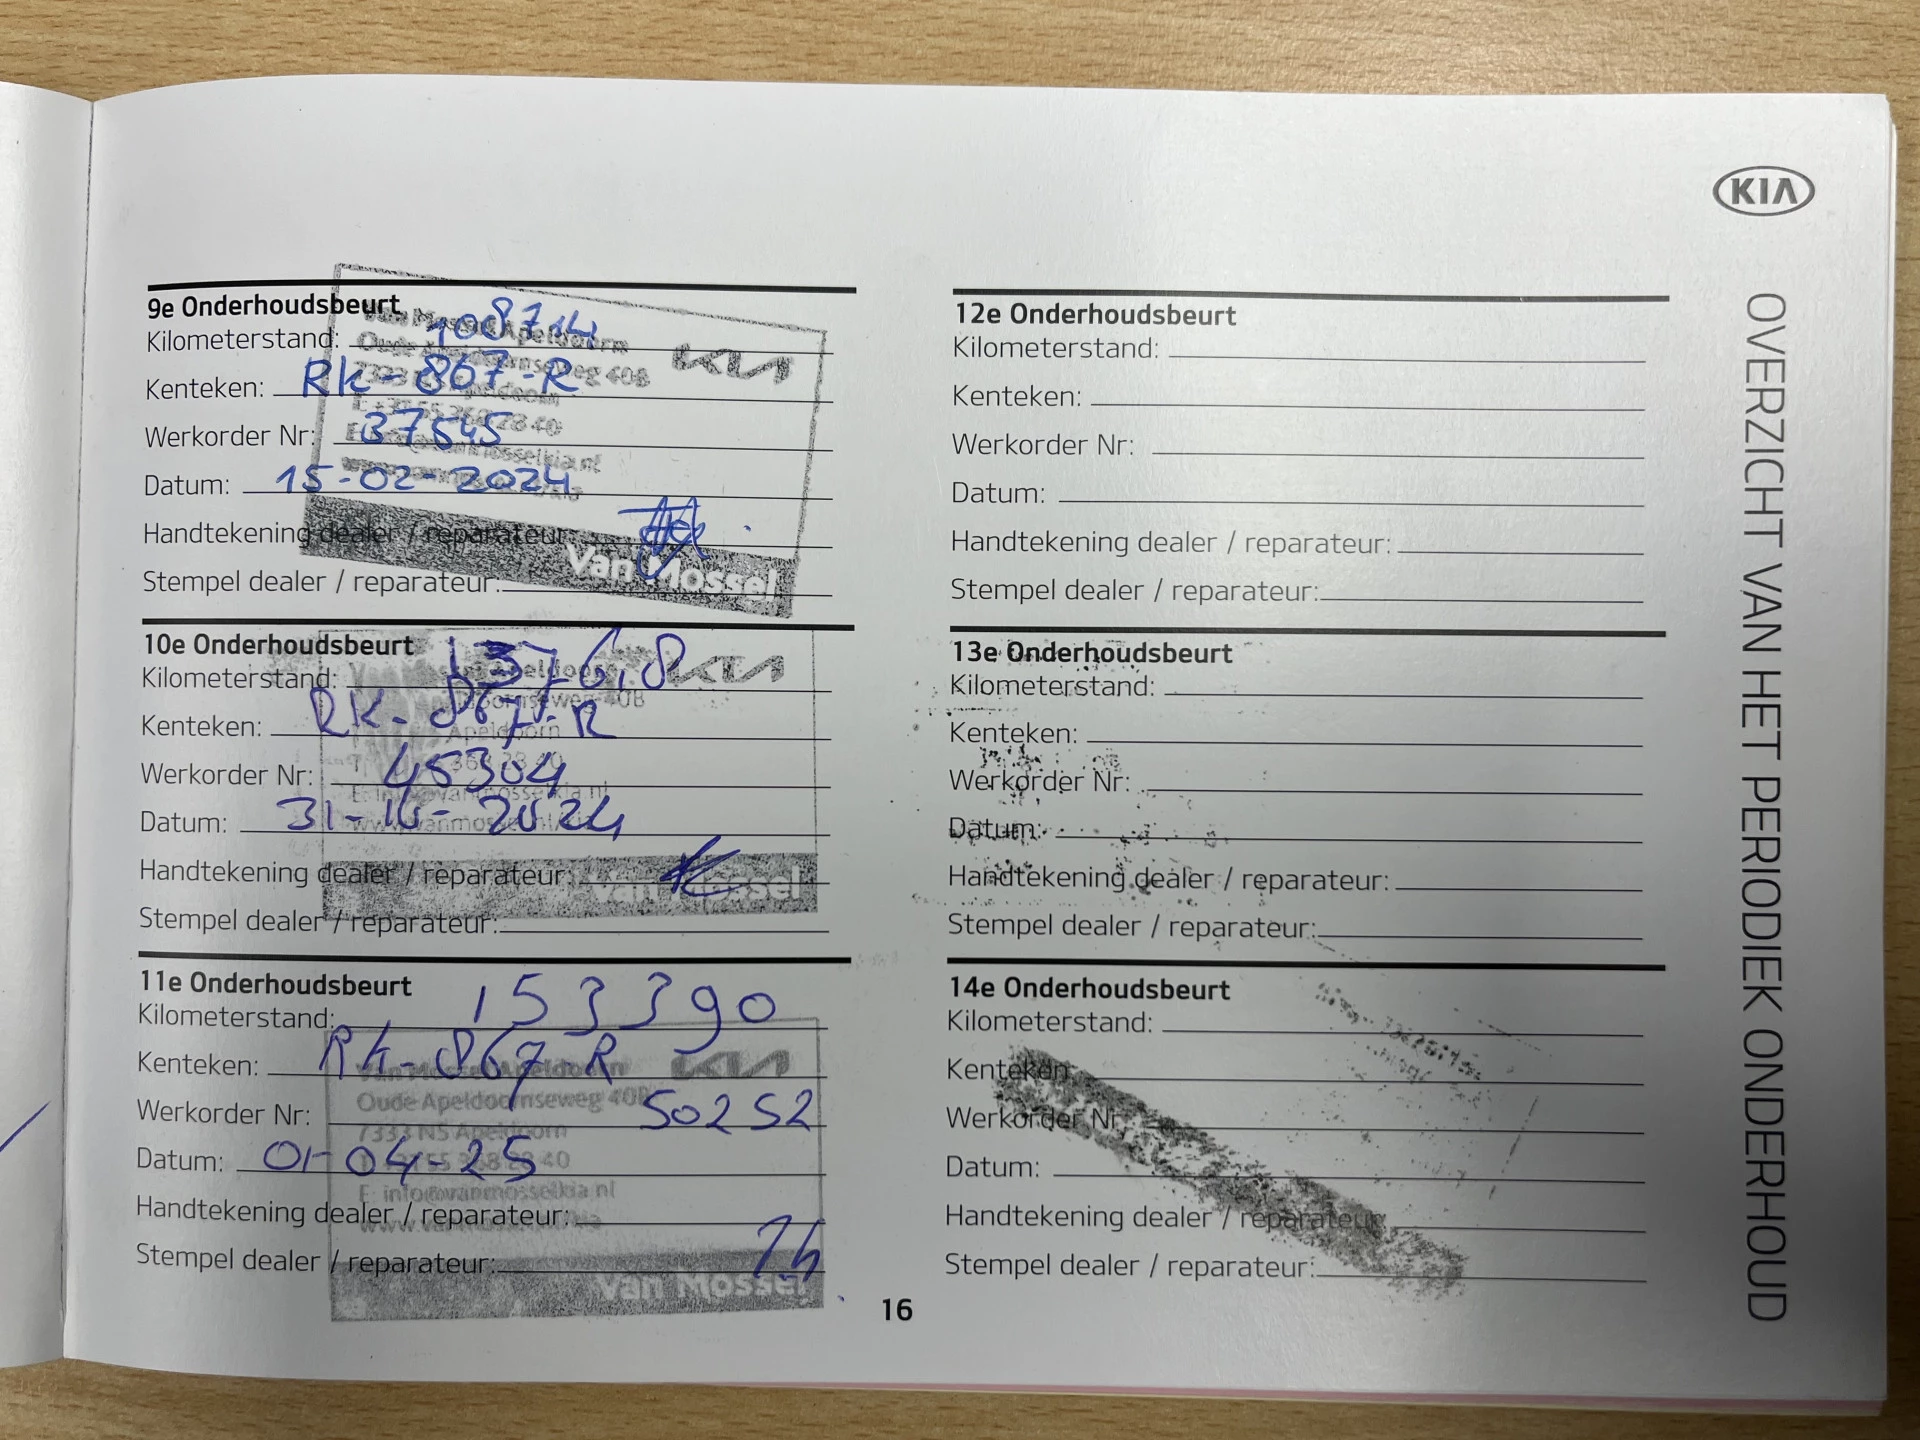 KIA
OVERZICHT VAN HET PERIODIEK ONDERHOUD
9e Onderhoudsbeurt
Kilometerstand: 108714
Kenteken: RK-867-R
Werkorder Nr: 37545
Datum: 15-02-2024
Handtekening dealer / reparateur:
Stempel dealer / reparateur:
Van Mossel Apeldoorn
Oude Apeldoornseweg 40B
KIA
Van Mossel
10e Onderhoudsbeurt
Kilometerstand:
Kenteken: RK-867-R
Werkorder Nr: 45304
Datum: 31-10-2024
Handtekening dealer / reparateur:
Stempel dealer / reparateur:
KIA
Apeldoorn
Van Mossel
11e Onderhoudsbeurt
Kilometerstand: 153390
Kenteken: RK-867-R
Werkorder Nr: 50252
Datum: 01-04-25
Handtekening dealer / reparateur:
Stempel dealer / reparateur:
Van Mossel Apeldoorn
KIA
Oude Apeldoornseweg 40B
7333 NS Apeldoorn
E: info@vanmosselkia.nl
Van Mossel
12e Onderhoudsbeurt
Kilometerstand:
Kenteken:
Werkorder Nr:
Datum:
Handtekening dealer / reparateur:
Stempel dealer / reparateur:
13e Onderhoudsbeurt
Kilometerstand:
Kenteken:
Werkorder Nr:
Datum:
Handtekening dealer / reparateur:
Stempel dealer / reparateur:
14e Onderhoudsbeurt
Kilometerstand:
Kenteken:
Werkorder Nr:
Datum:
Handtekening dealer / reparateur:
Stempel dealer / reparateur:
16